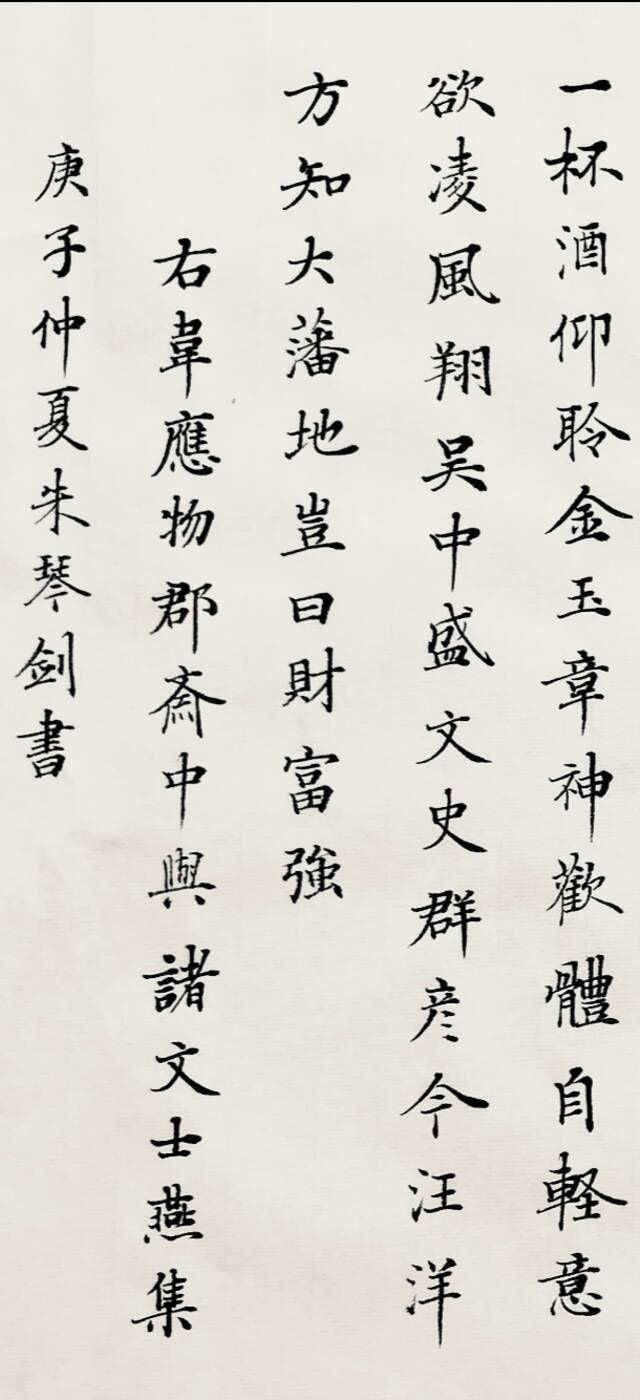 一杯酒仰聆金玉章神歡體自軽意
欲凌風翔吴中盛文史群彦今汪洋
方知大藩地豈曰財富強
右韋應物郡斎中與諸文士燕集
庚子仲夏朱琴剑書